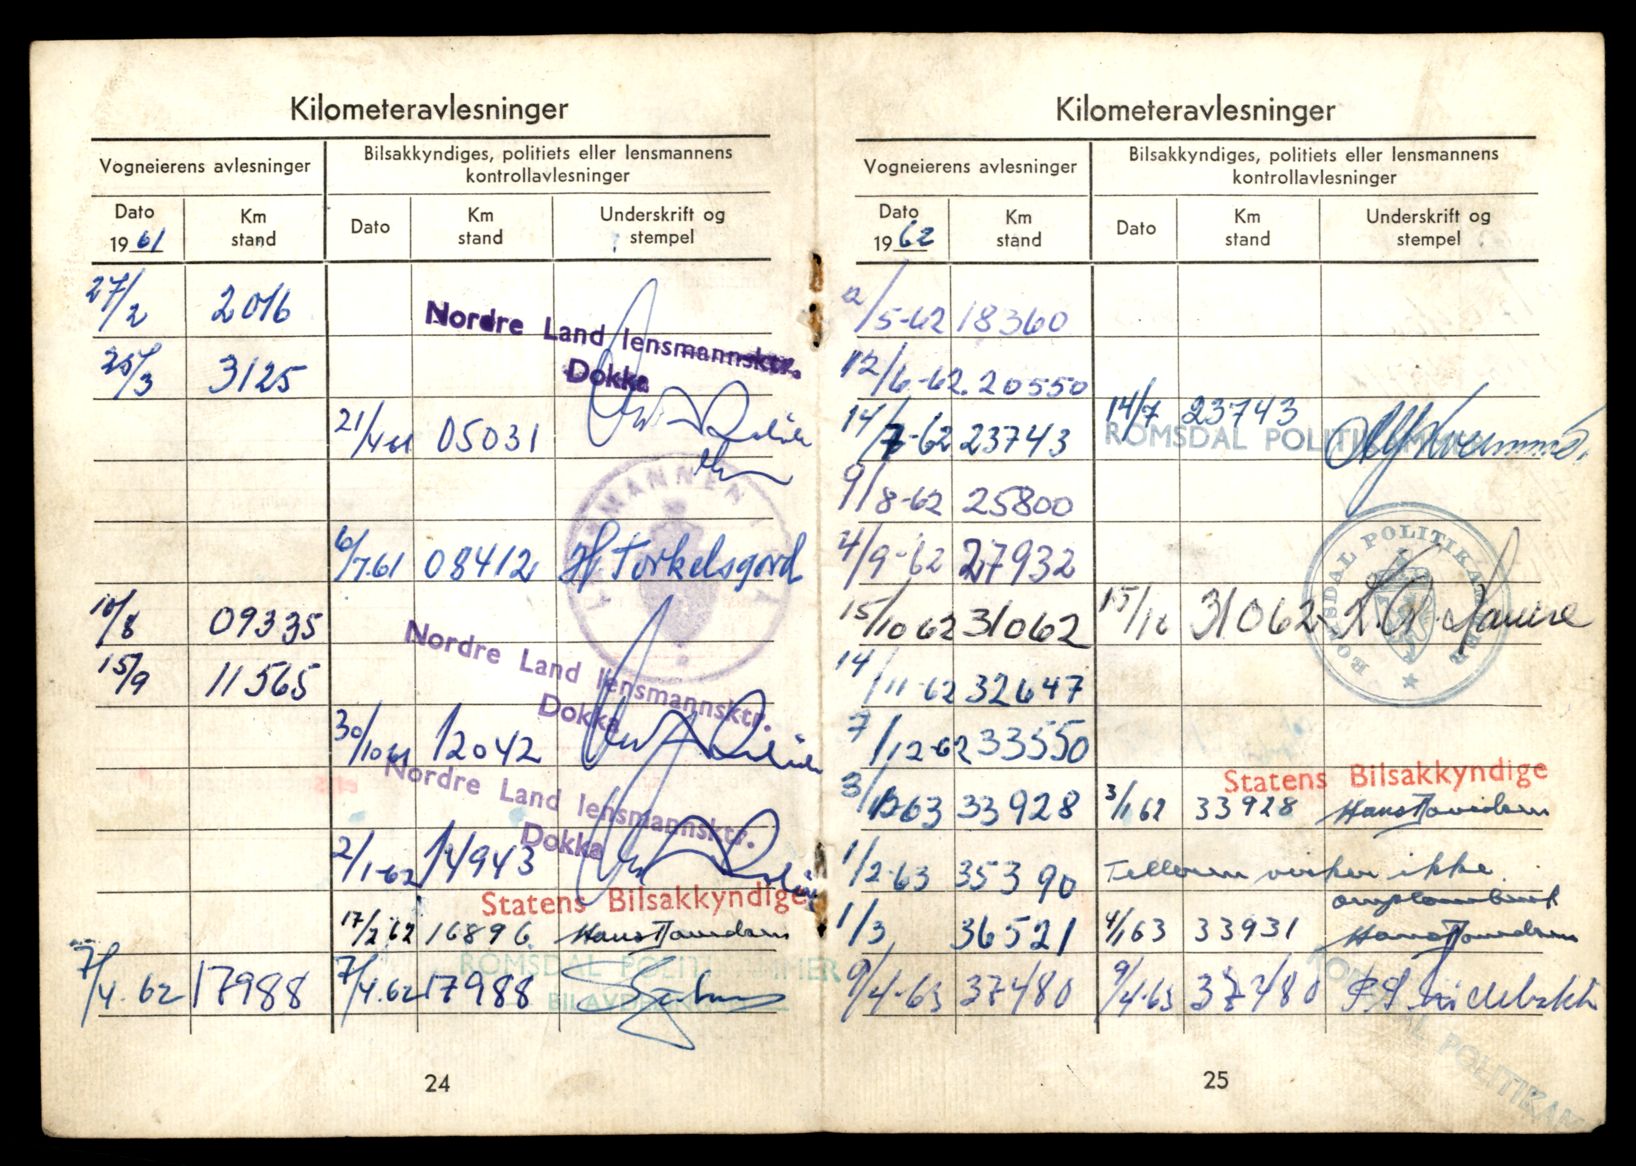 Kilometeravlesninger
Vogneierens avlesninger
Bilsakkyndiges, politiets eller lensmannens
kontrollavlesninger
Dato
19 61
Km
stand
Dato
Km
stand
Underskrift og
stempel
27/2 2016
Nordre Land lensmannsktr.
Dokka
25/3 3125
21/4 61 05031
LENSMANNEN I
6/7.61 08412 H. Torkelsgord
10/8 09335
Nordre Land lensmannsktr.
Dokka
15/9 11565
30/10 61 12042
Nordre Land lensmannsktr.
Dokka
2/1-62 14943
Statens Bilsakkyndige
17/2 62 16896
ROMSDAL POLITIKAMMER
7/4. 62 17988 7/4.62 17988
24
Kilometeravlesninger
Vogneierens avlesninger
Bilsakkyndiges, politiets eller lensmannens
kontrollavlesninger
Dato
19 62
Km
stand
Dato
Km
stand
Underskrift og
stempel
2/5-62 18360
12/6-62. 20550
14/7-62 23743 14/7 23743
ROMSDAL POLITIKAMMER
9/8-62 25800
4/9-62 27932
ROMSDAL POLITIKAMMER
15/10 62 31062 15/10 31062
14/11-62 32647
7/12-62 33550
Statens Bilsakkyndige
3/1 63 33928 3/1 62 33928
1/2-63 35390 Telleren virker ikke.
omplombert
1/3 36521 4/1 63 33931
9/4-63 37480 9/4-63 37480
ROMSDAL POLITIKAM
25